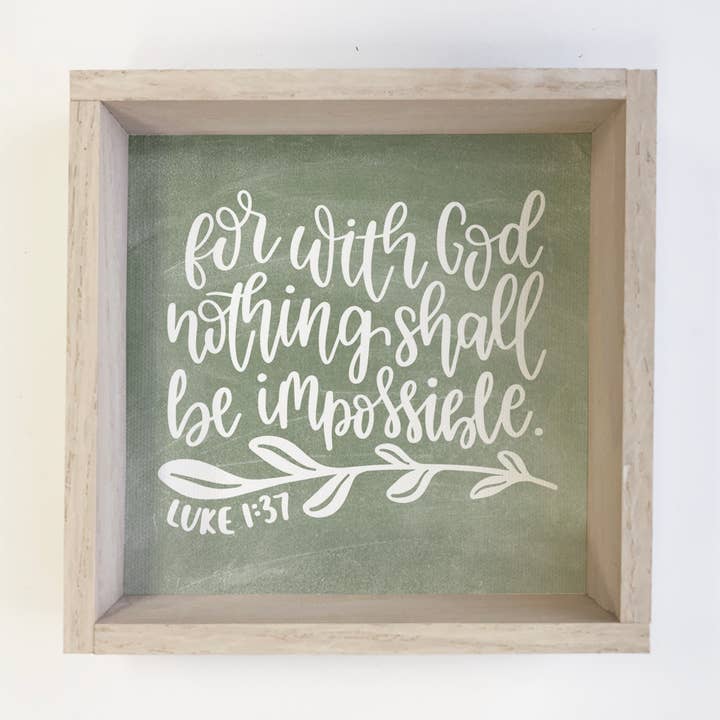 for with God
nothing shall
be impossible.
LUKE 1:37